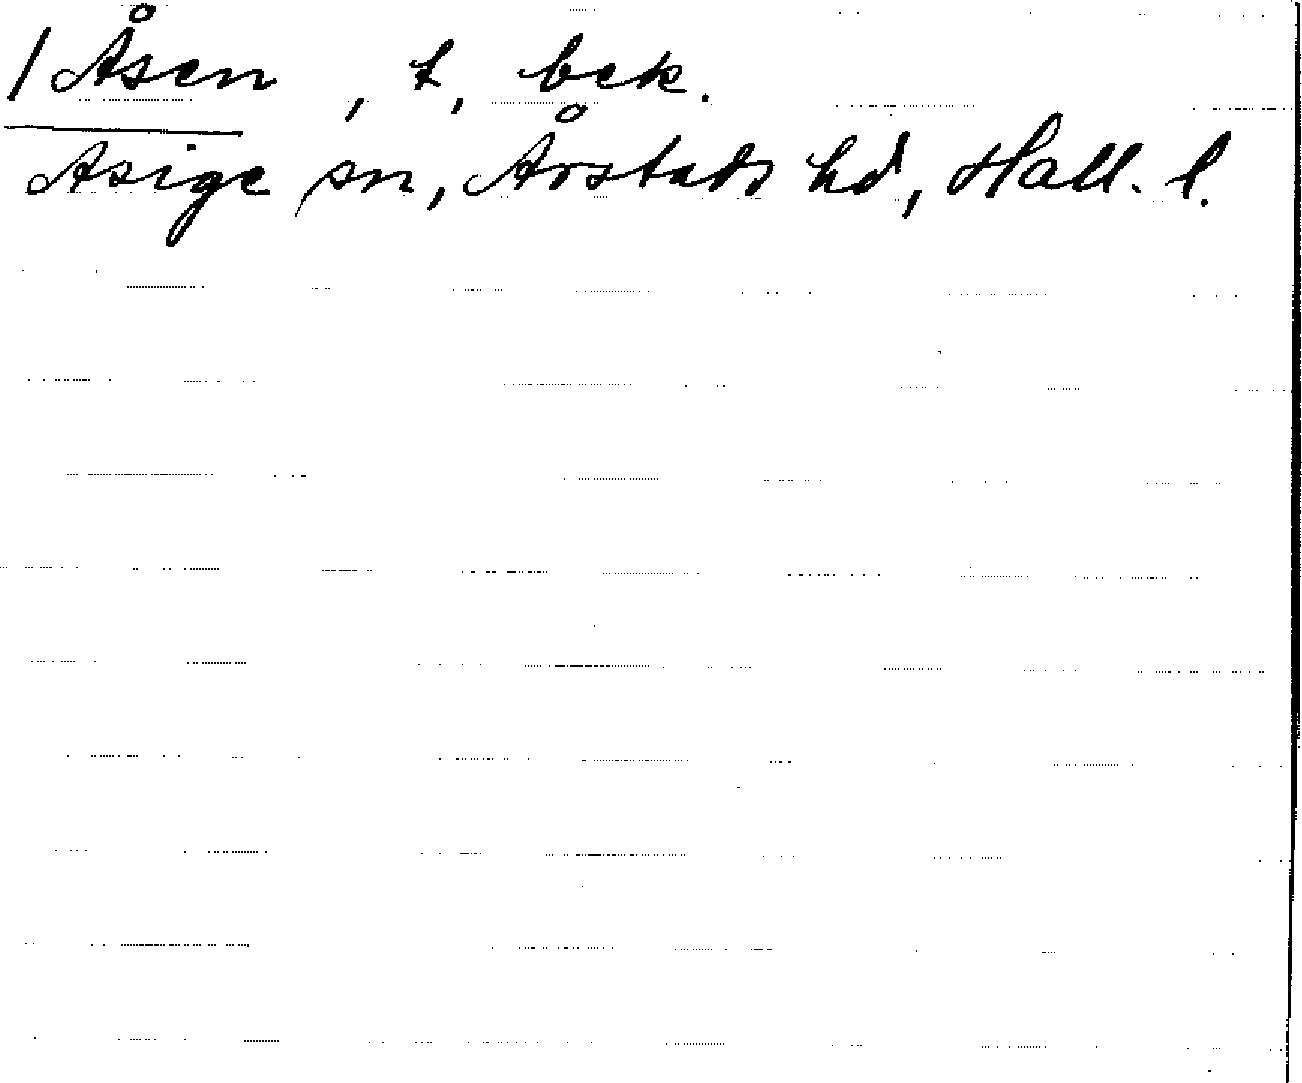 / Åsen , t, bek.
Asige sn, Årstads hd, Hall. l.